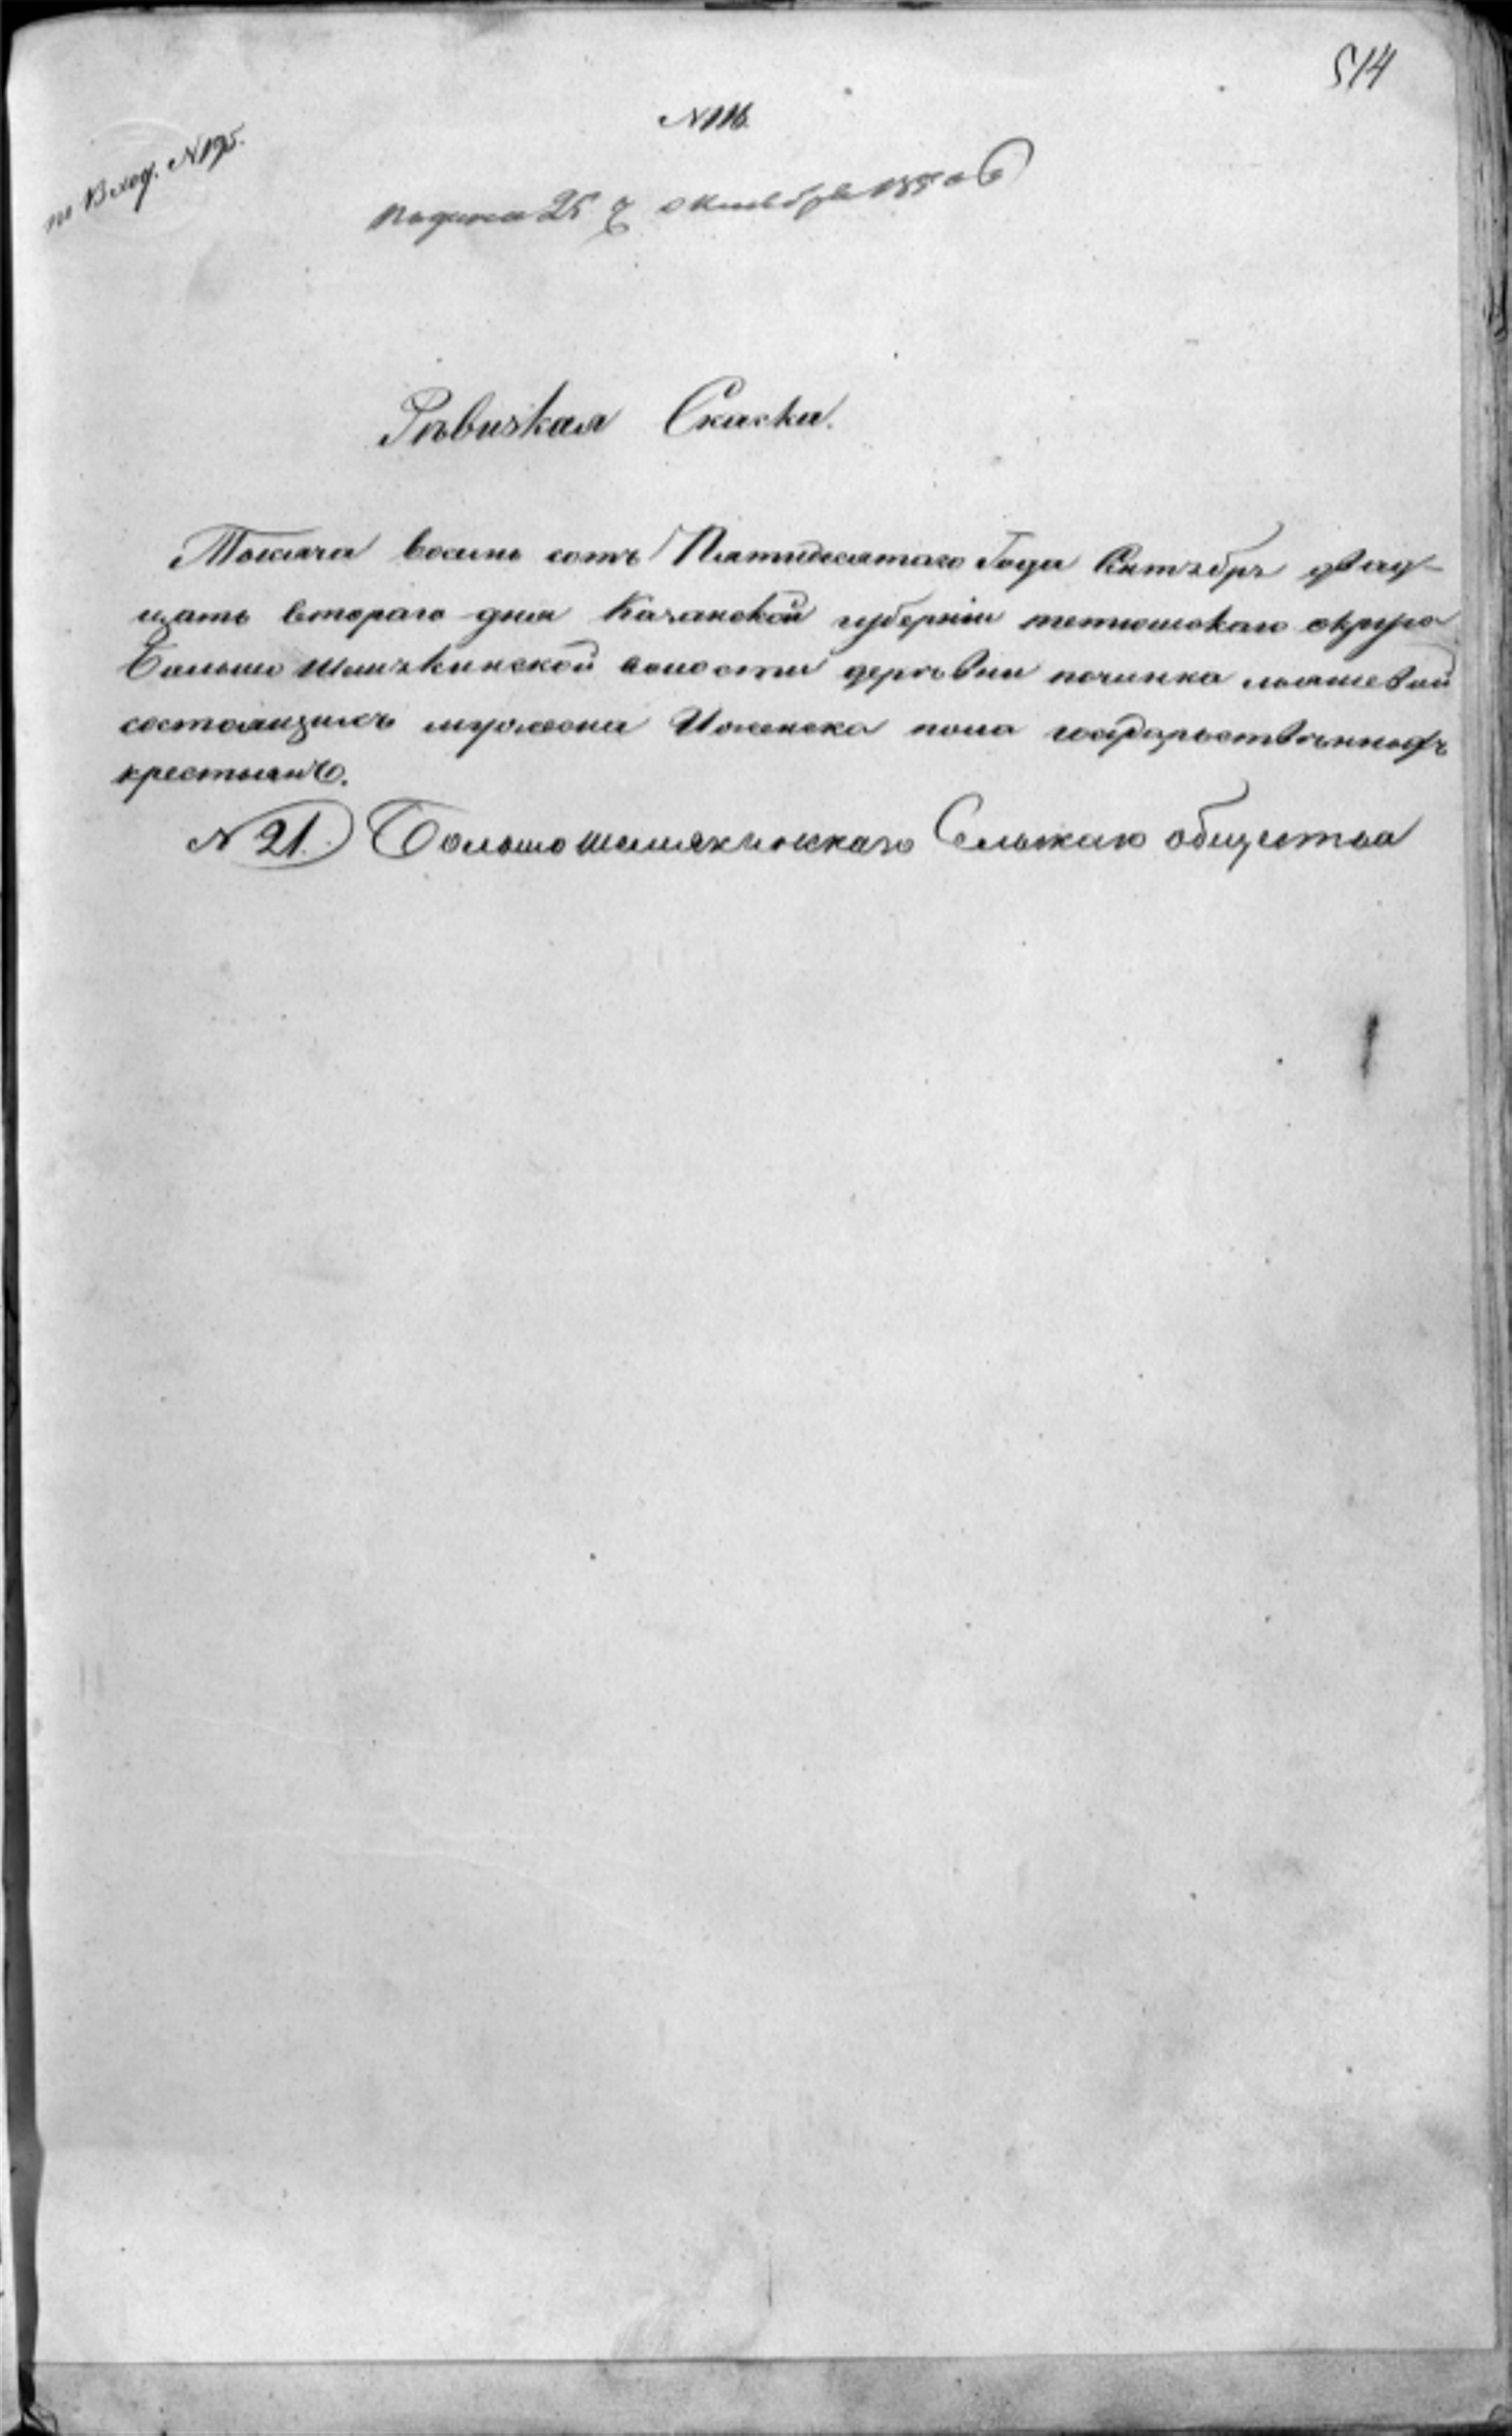 514
N 116.
по Вход. N 195.
Подана 25 октября 1850
Ревизкая Скаска.
Тысяча восемь сотъ Пятидесятаго Года Сентебря двад-
цать втораго дня Казанской губерніи тетюшскаго округа
Больше Шемякинской волости деревни починка
состоящихъ мужеска и женска пола государственныхъ
крестьянъ.
N 21. Большошемякинскаго Сельскаго общества